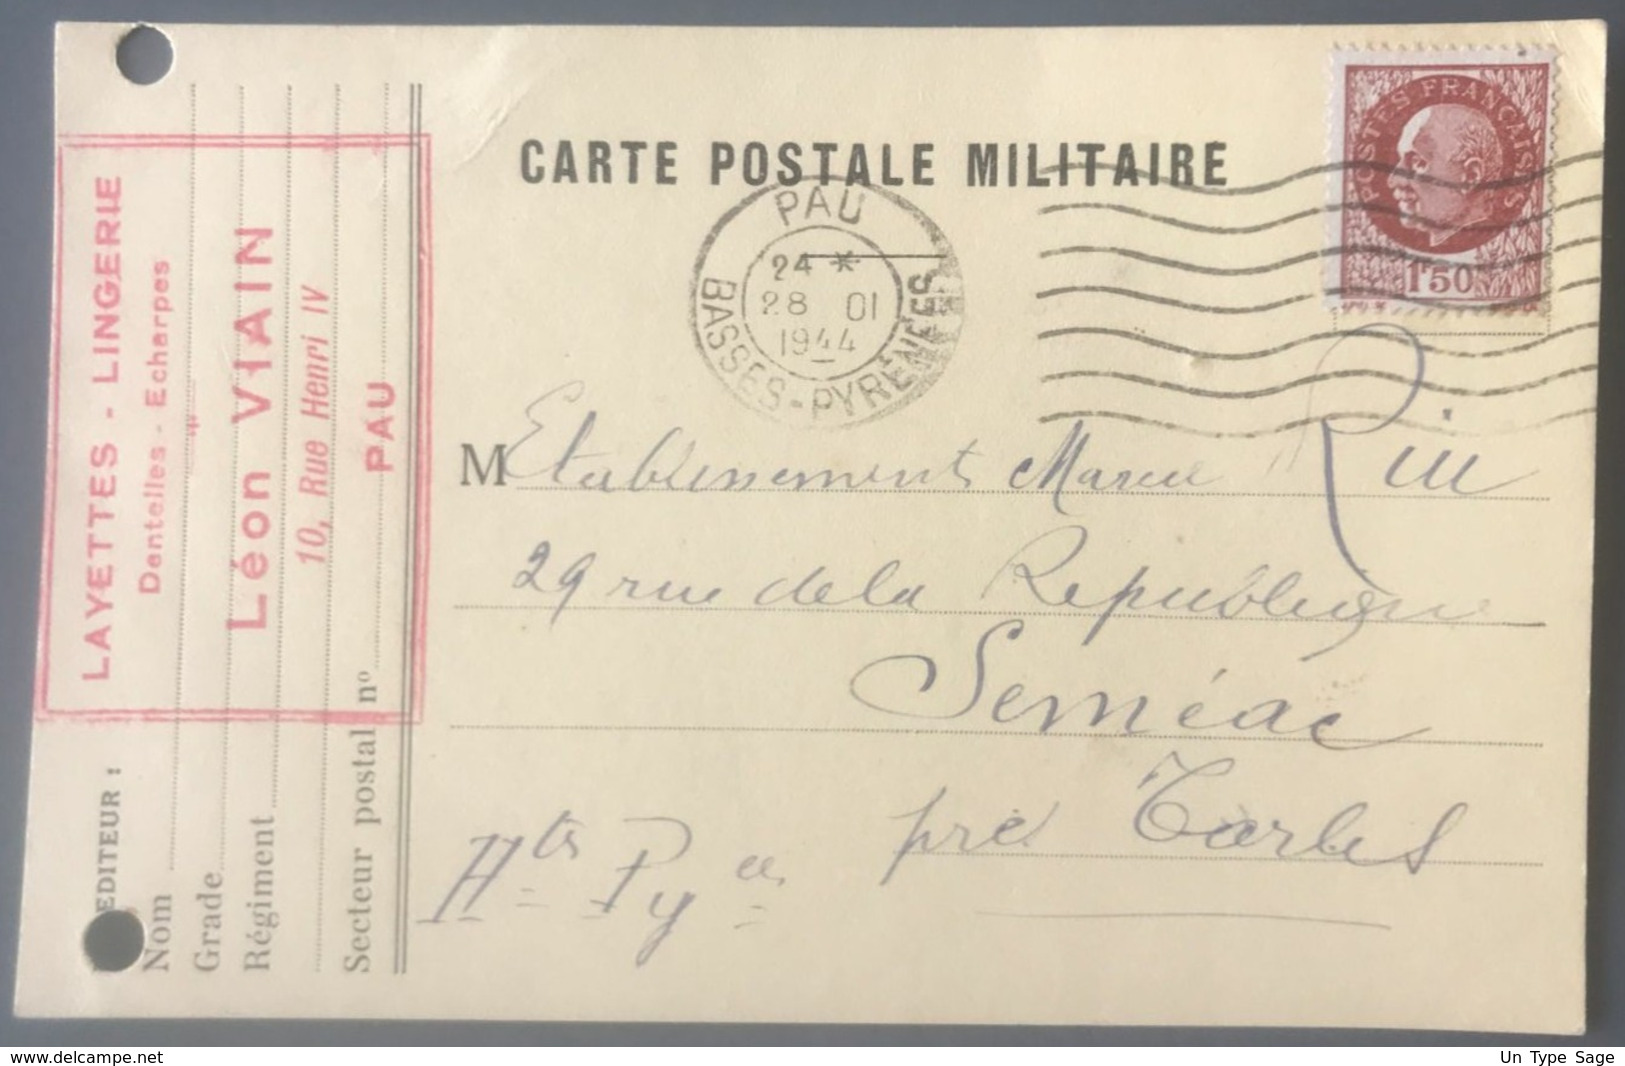 CARTE POSTALE MILITAIRE
POSTES FRANÇAISES
1F50
PAU
24 *
28 01
1944
BASSES-PYRÉNÉES
M Etablissements Marcel
29 rue de la Republique
Seméac
près Tarbes
Htes Pyées
LAYETTES - LINGERIE
Dentelles - Echarpes
Léon VIAIN
10, Rue Henri IV
PAU
EDITEUR :
Nom
Grade
Régiment
Secteur postal no
delcampe.net
Un Type Sage